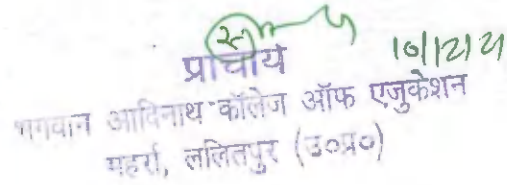 10/12/21
प्राचार्य
भगवान आदिनाथ कॉलेज ऑफ एजुकेशन
महर्रा, ललितपुर (उ०प्र०)